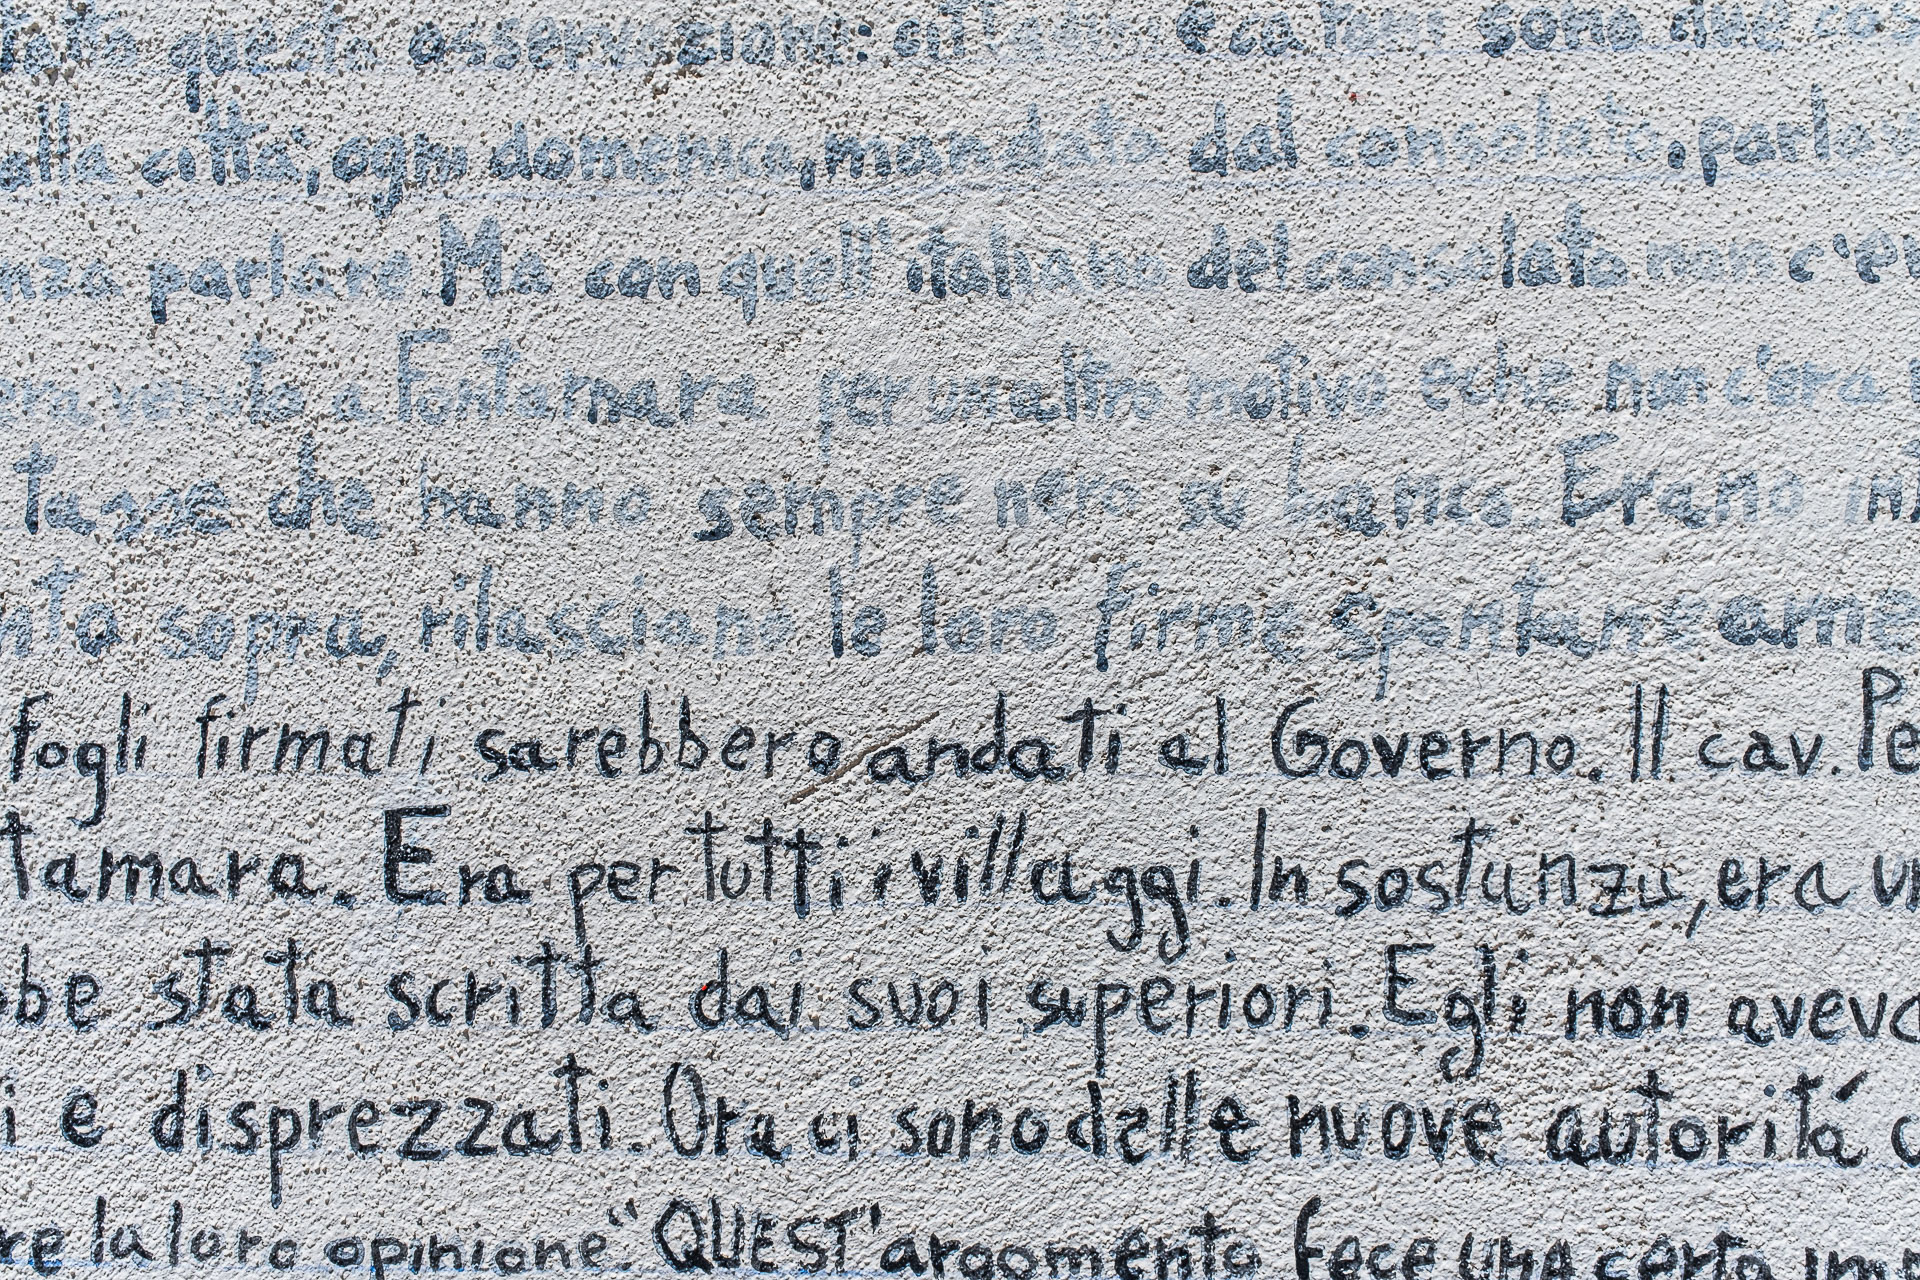 questa osservazione: cittadini e cafoni sono due cos
alla città, ogni domenica, mandato dal consolato, parla
nza parlare Ma con quell'italiano del consolato non c'e
era venuto a Fontamara per un altro motivo e che non c'era
tasse che hanno sempre nero su bianco. Erano in
nto sopra, rilasciano le loro firme spontaneame
fogli firmati sarebbero andati al Governo. Il cav. Pe
tamara. Era per tutti i villaggi. In sostanza, era un
bbe stata scritta dai suoi superiori. Egli non aveva
i e disprezzati. Ora ci sono delle nuove autoritá c
re la loro opinione." QUEST'argomento fece una certa im